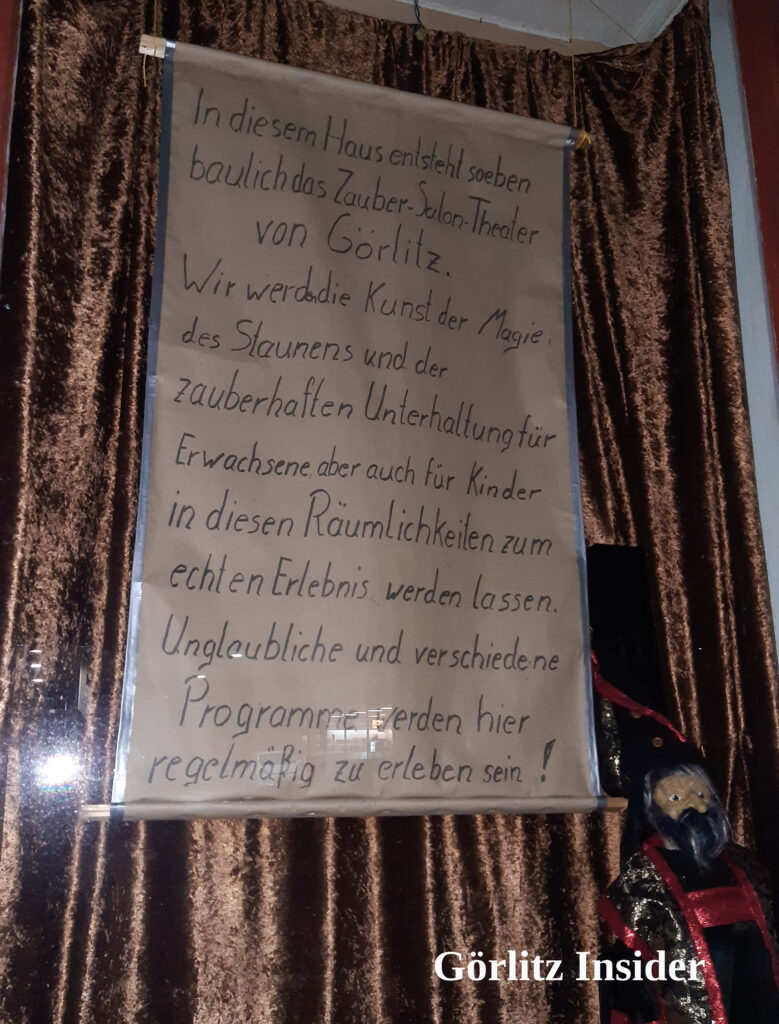 In diesem Haus entsteht soeben
baulich das Zauber-Salon-Theater
von Görlitz.
Wir werden die Kunst der Magie,
des Staunens und der
zauberhaften Unterhaltung für
Erwachsene, aber auch für Kinder
in diesen Räumlichkeiten zum
echten Erlebnis werden lassen.
Unglaubliche und verschiedene
Programme werden hier
regelmäßig zu erleben sein!
Görlitz Insider